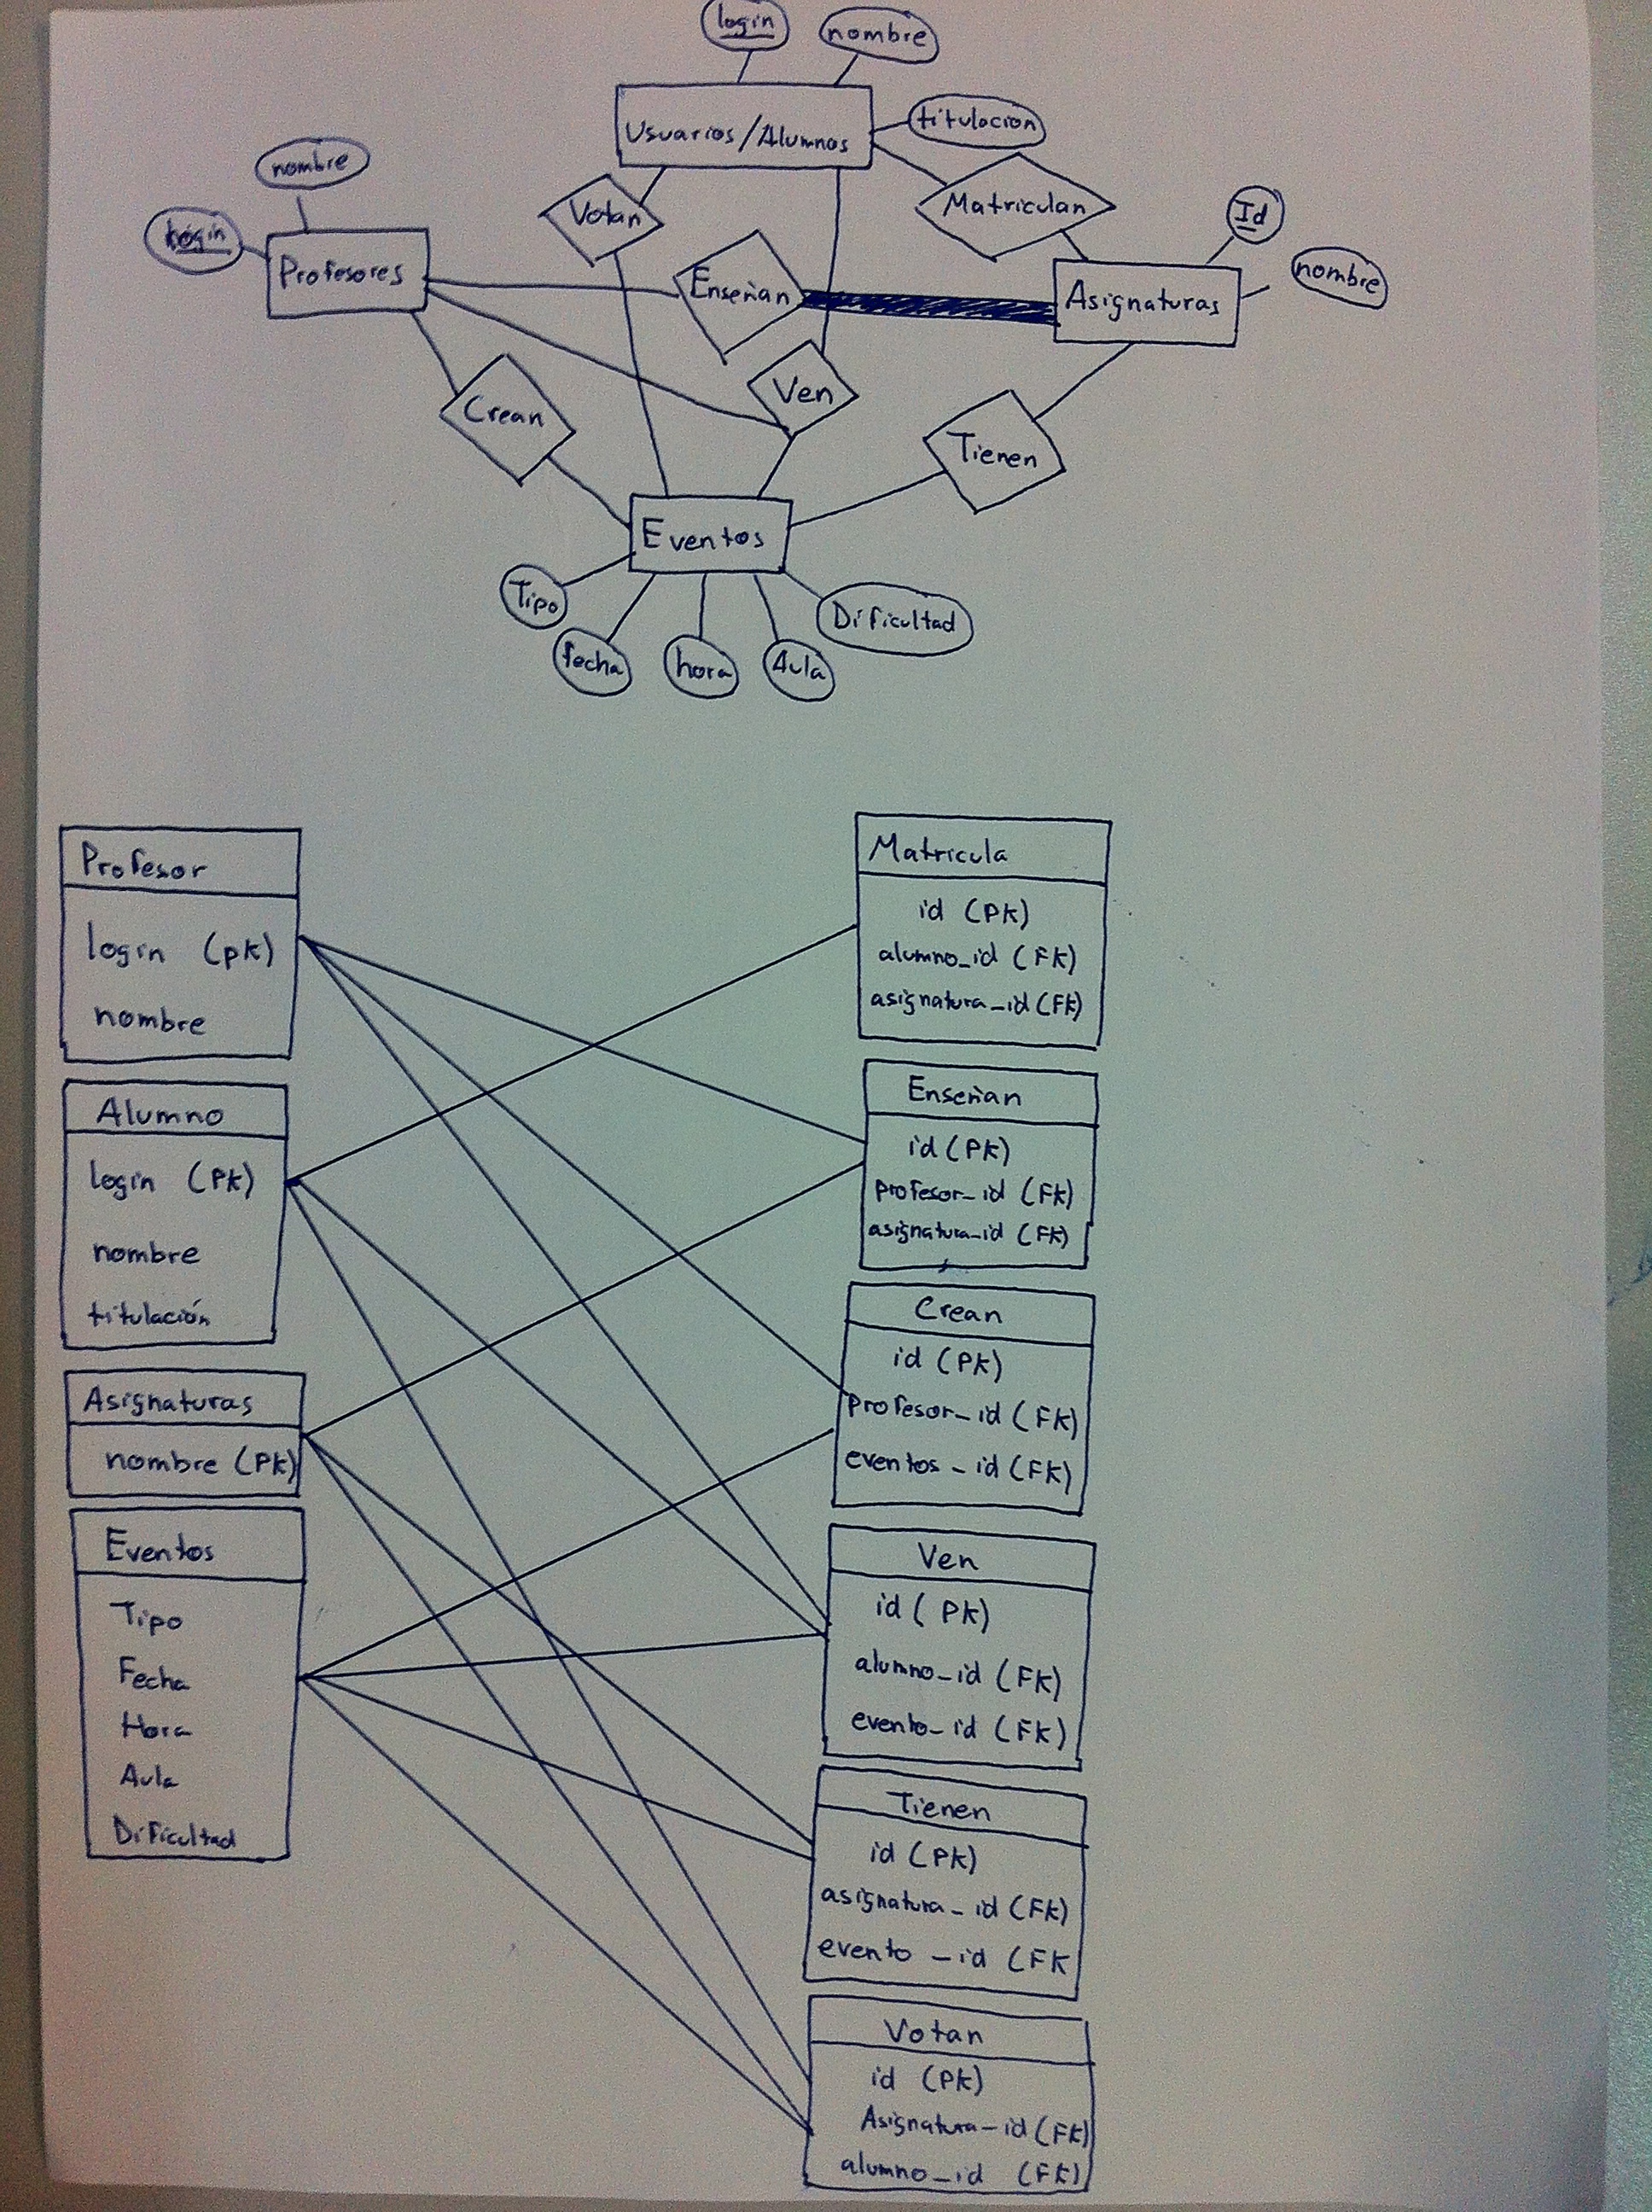 login
nombre
Usuarios/Alumnos
titulacion
nombre
login
Profesores
Votan
Matriculan
Id
nombre
Enseñan
Asignaturas
Crean
Ven
Tienen
Eventos
Tipo
fecha
hora
Aula
Dificultad
Profesor
login (pk)
nombre
Alumno
login (Pk)
nombre
titulación
Asignaturas
nombre (Pk)
Eventos
Tipo
Fecha
Hora
Aula
Dificultad
Matricula
id (Pk)
alumno_id (Fk)
asignatura_id (Fk)
Enseñan
id (Pk)
profesor_id (Fk)
asignatura_id (Fk)
Crean
id (Pk)
profesor_id (Fk)
eventos_id (Fk)
Ven
id (Pk)
alumno_id (Fk)
evento_id (Fk)
Tienen
id (Pk)
asignatura_id (Fk)
evento_id (Fk
Votan
id (Pk)
Asignatura_id (Fk)
alumno_id (Fk)